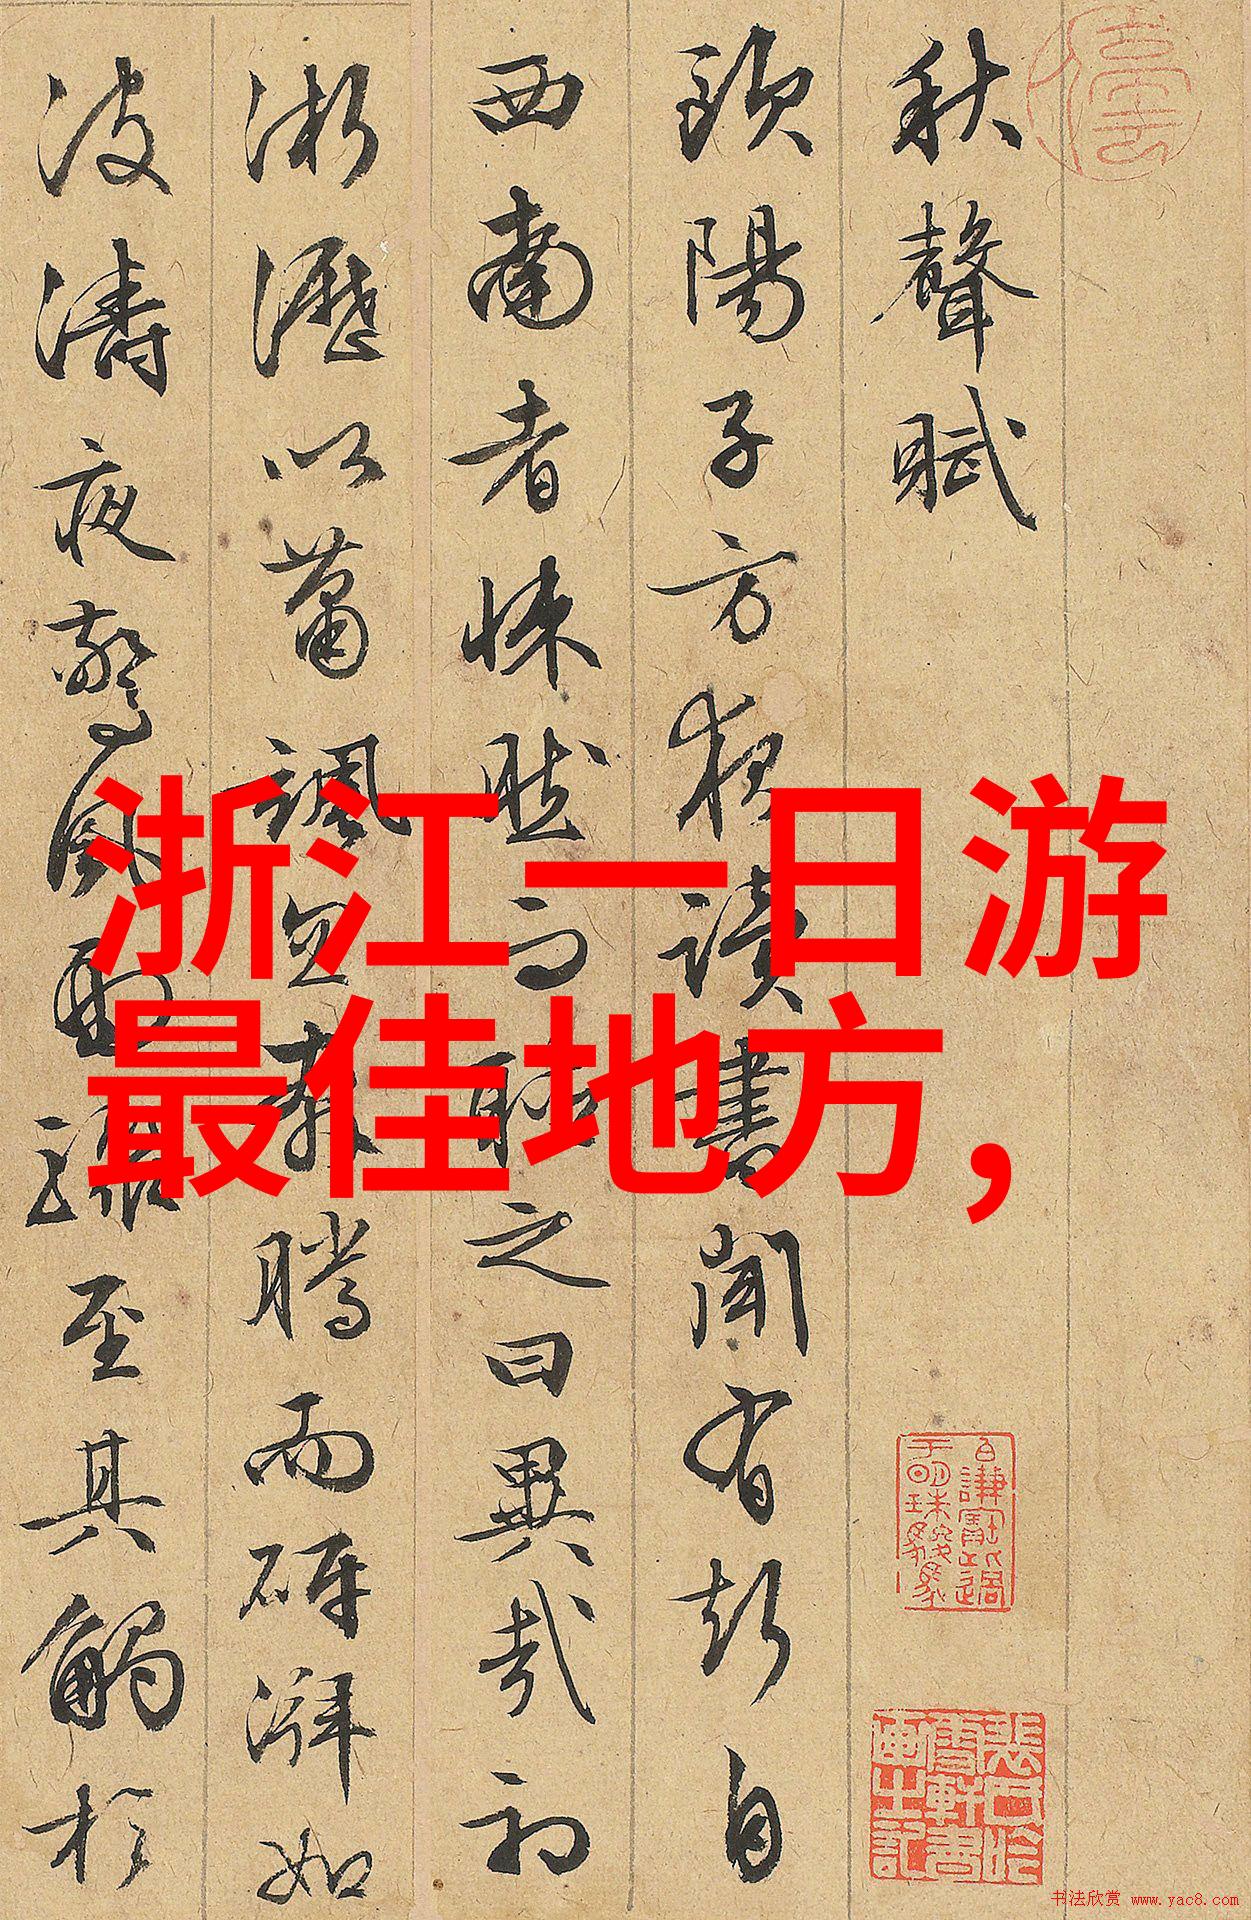 秋聲賦
歐陽子方夜讀書聞有聲自
西南者悚然而聽之曰異哉初
淅瀝以蕭颯忽奔騰而砰湃如
波濤夜驚風雨驟至其觸於
浙江一日游
最佳地方，
书法欣赏 www.yac8.com